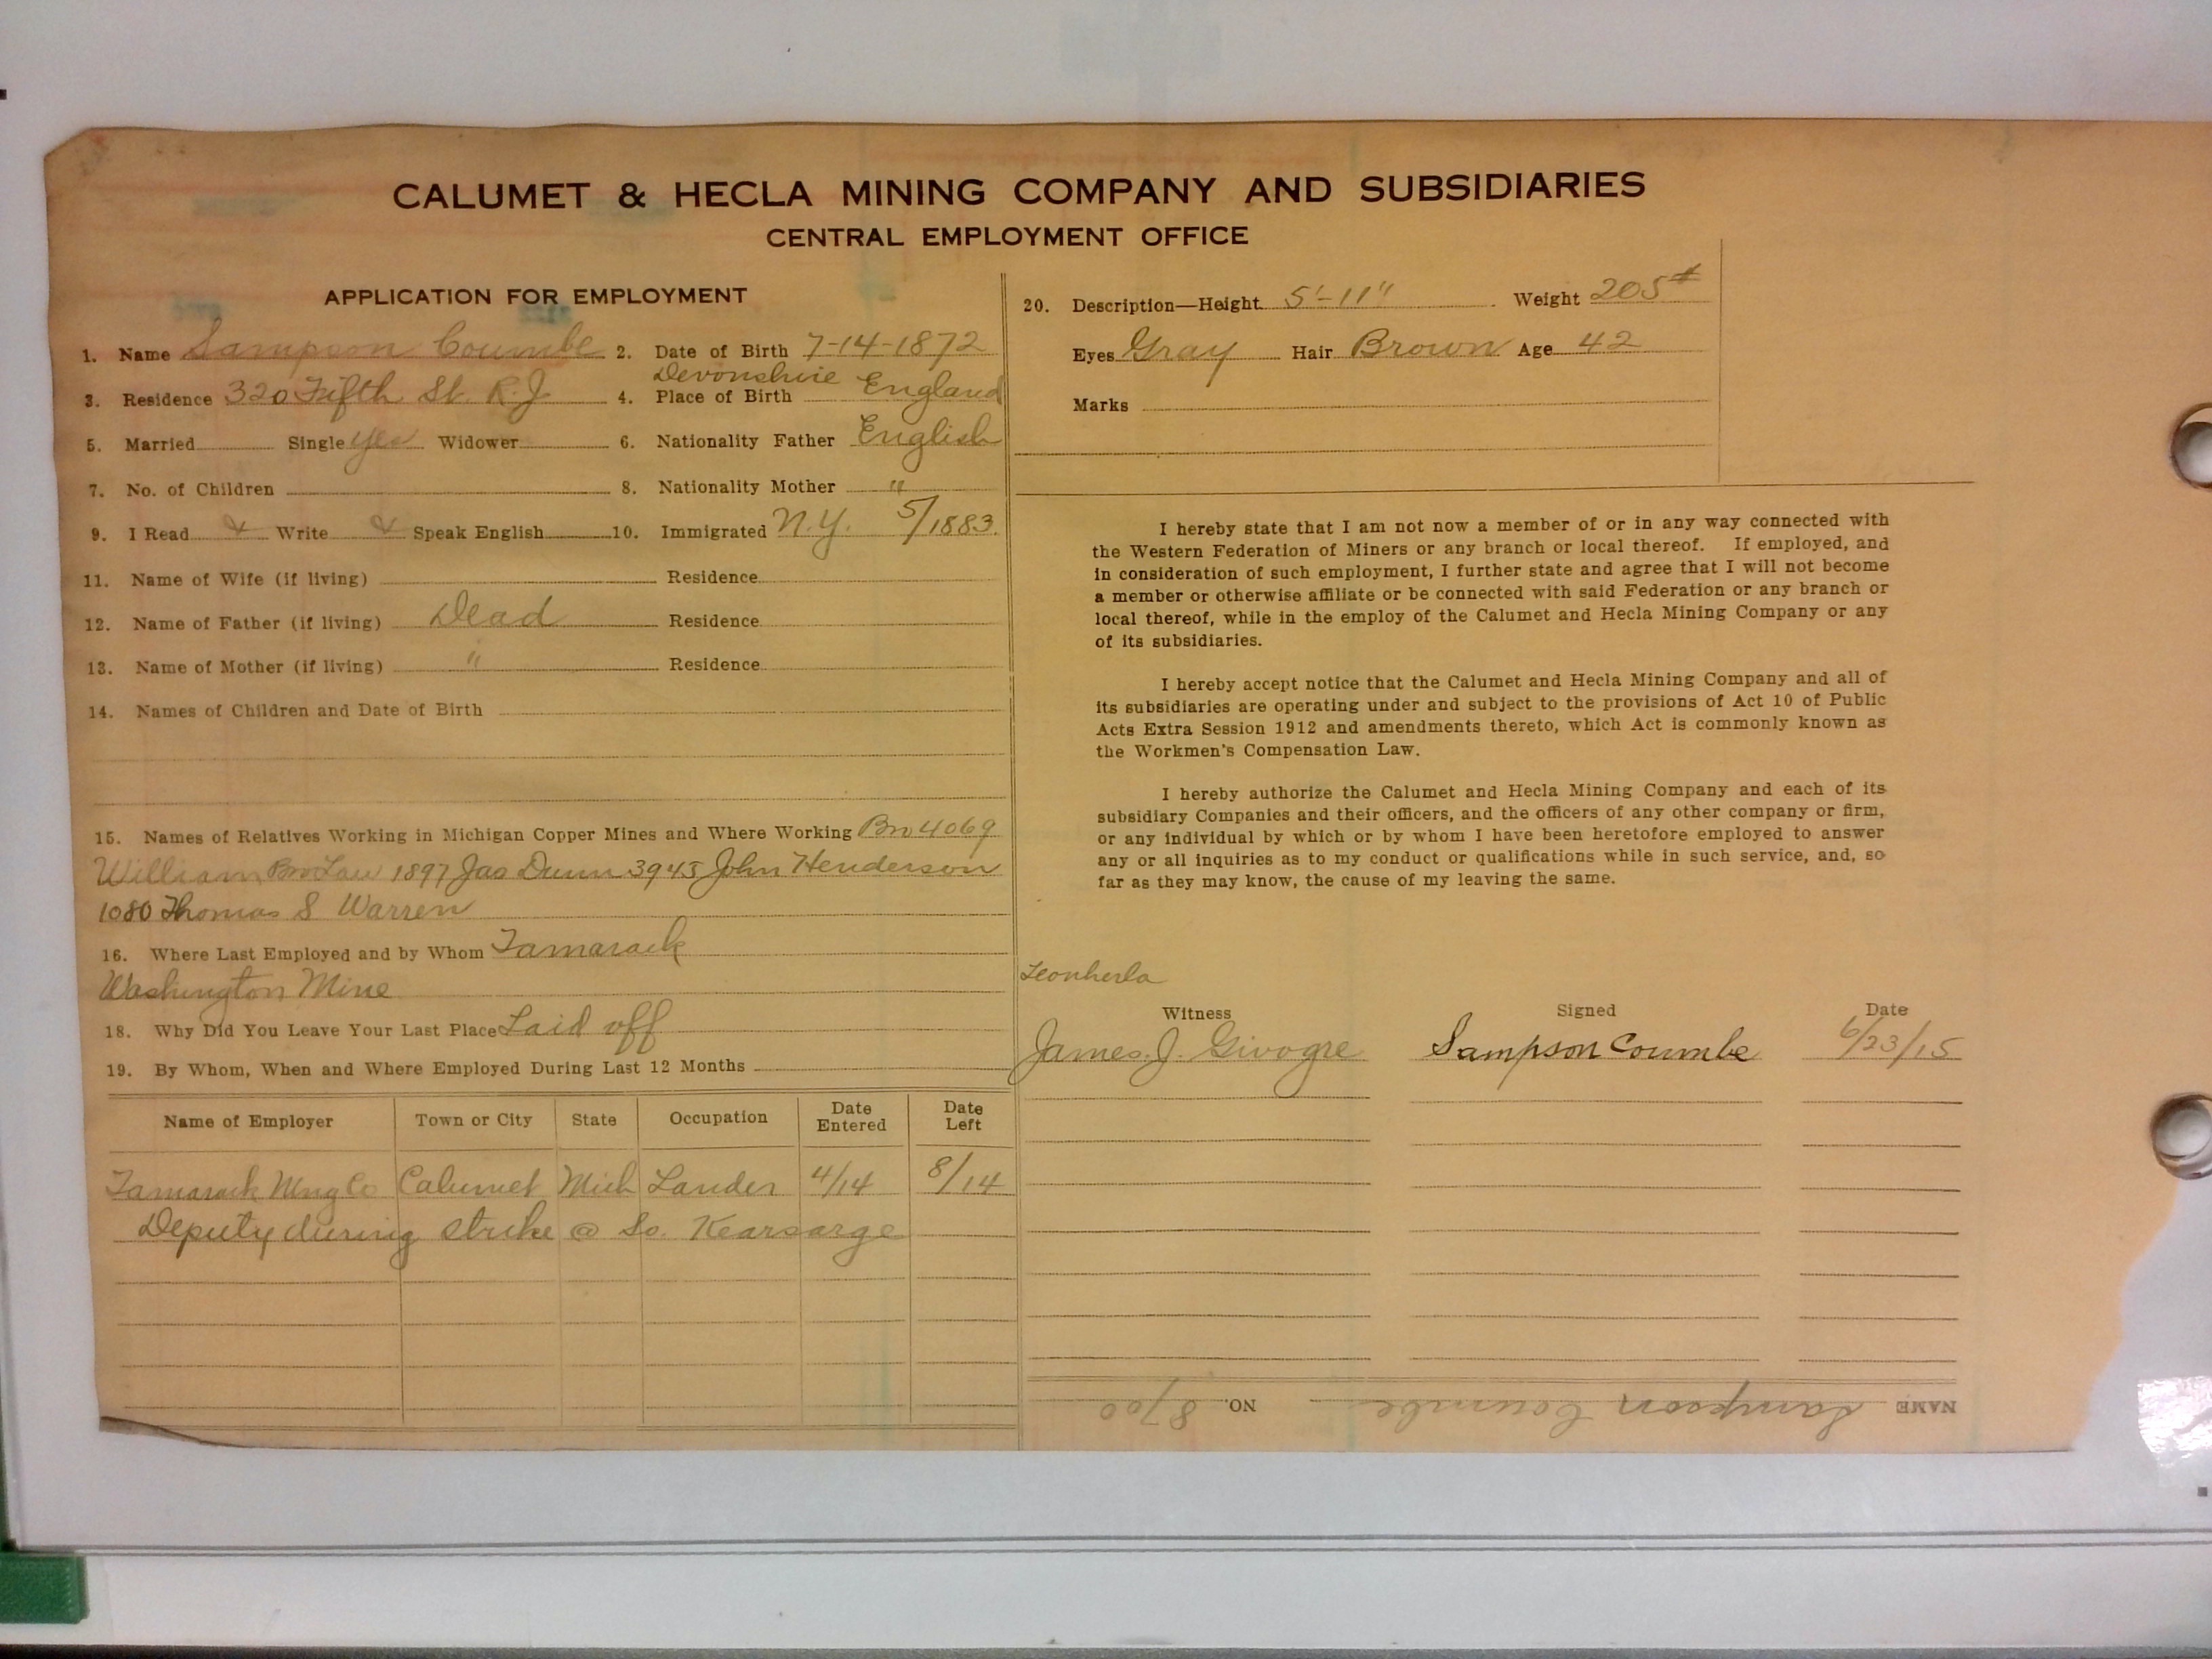 CALUMET & HECLA MINING COMPANY AND SUBSIDIARIES
CENTRAL EMPLOYMENT OFFICE
APPLICATION FOR EMPLOYMENT
1. Name Sampson Coumbe 2. Date of Birth 7-14-1872
3. Residence 320 Fifth St. R.J. 4. Place of Birth Devonshire England
5. Married Single yes Widower 6. Nationality Father English
7. No. of Children 8. Nationality Mother "
9. I Read & Write & Speak English 10. Immigrated N.Y. 5/1883.
11. Name of Wife (if living) Residence
12. Name of Father (if living) Dead Residence
13. Name of Mother (if living) " Residence
14. Names of Children and Date of Birth
15. Names of Relatives Working in Michigan Copper Mines and Where Working Bro 4069
William Bro Law 1897 Jas Dunn 3945 John Henderson
1080 Thomas S Warren
16. Where Last Employed and by Whom Tamarack
Washington Mine
18. Why Did You Leave Your Last Place Laid off
19. By Whom, When and Where Employed During Last 12 Months
Name of Employer Town or City State Occupation Date Entered Date Left
Tamarack Mng Co Calumet Mich Lander 4/14 8/14
Deputy during strike @ So. Kearsarge
20. Description—Height 5'-11" Weight 205#
Eyes Gray Hair Brown Age 42
Marks
I hereby state that I am not now a member of or in any way connected with
the Western Federation of Miners or any branch or local thereof. If employed, and
in consideration of such employment, I further state and agree that I will not become
a member or otherwise affiliate or be connected with said Federation or any branch or
local thereof, while in the employ of the Calumet and Hecla Mining Company or any
of its subsidiaries.
I hereby accept notice that the Calumet and Hecla Mining Company and all of
its subsidiaries are operating under and subject to the provisions of Act 10 of Public
Acts Extra Session 1912 and amendments thereto, which Act is commonly known as
the Workmen's Compensation Law.
I hereby authorize the Calumet and Hecla Mining Company and each of its
subsidiary Companies and their officers, and the officers of any other company or firm,
or any individual by which or by whom I have been heretofore employed to answer
any or all inquiries as to my conduct or qualifications while in such service, and, so
far as they may know, the cause of my leaving the same.
Witness Signed Date
James J. Givogre Sampson Coumbe 6/23/15
NAME Sampson Coumbe NO. 8700